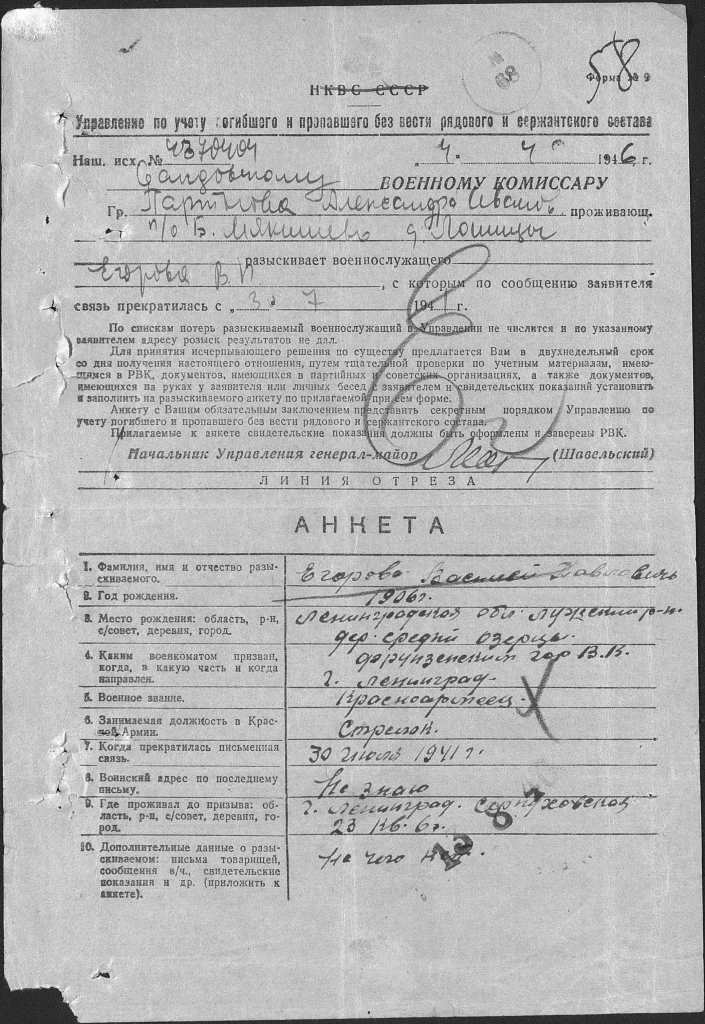 58
Форма № 9
№
68
НКВС СССР
Управление по учету погибшего и пропавшего без вести рядового и сержантского состава
Наш. исх. № 4370404 „4. 4 1946 г.
Сандовскому ВОЕННОМУ КОМИССАРУ
Гр. Александра проживающ.
п/о Б. д. Лошицы
разыскивает военнослужащего
Егорова В П , с которым по сообщению заявителя
связь прекратилась с „3 7 1941 г.
По спискам потерь разыскиваемый военнослужащий в Управлении не числится и по указанному
заявителем адресу розыск результатов не дал.
Для принятия исчерпывающего решения по существу предлагается Вам в двухнедельный срок
со дня получения настоящего отношения, путем тщательной проверки по учетным материалам, имею-
щимся в РВК, документов, имеющихся в партийных и советских организациях, а также документов,
имеющихся на руках у заявителя или личных бесед с заявителем и свидетельских показаний установить
и заполнить на разыскиваемого анкету по прилагаемой при сем форме.
Анкету с Вашим обязательным заключением представить секретным порядком Управлению по
учету погибшего и пропавшего без вести рядового и сержантского состава.
Прилагаемые к анкете свидетельские показания должны быть оформлены и заверены РВК.
Начальник Управления генерал-майор (Шавельский)
ЛИНИЯ ОТРЕЗА
АНКЕТА
1. Фамилия, имя и отчество разы-
скиваемого.
Егорова Василий Павлович
2. Год рождения.
1906г.
3. Место рождения: область, р-н,
с/совет, деревня, город.
Ленинградская обл. Лужский р-н.
дер. средни озерцы.
4. Каким военкоматом призван,
когда, в какую часть и когда
направлен.
Фрунзенским гор В.К.
г. Ленинград.
5. Военное звание.
Красноармеец.
6. Занимаемая должность в Крас-
ной Армии.
Стрелок.
7. Когда прекратилась письменная
связь.
30 июля 1941 г.
8. Воинский адрес по последнему
письму.
Не знаю
9. Где проживал до призыва: об-
ласть, р-н, с/совет, деревня, го-
род.
г. Ленинград. Серпуховская
23 кв. 6г.
10. Дополнительные данные о разы-
скиваемом: письма товарищей,
сообщения в/ч., свидетельские
показания и др. (приложить к
анкете).
Не чего нет.